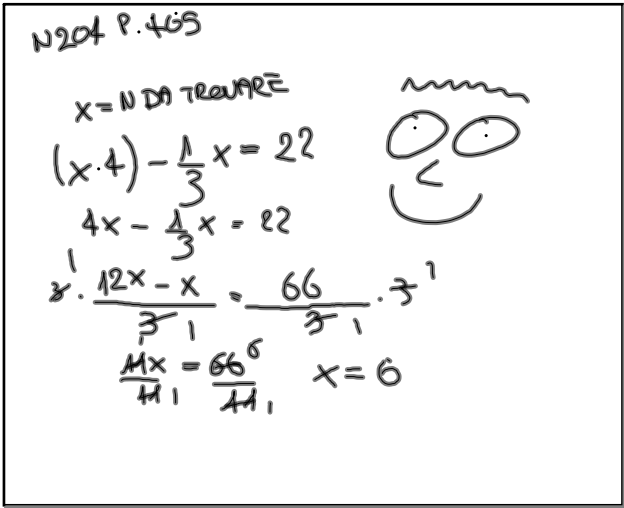 N204 P. 465
x = N DA TROVARE
(x·4) - 1/3 x = 22
4x - 1/3 x = 22
3 1 · 12x - x / 3 1 = 66 / 3 1 · 3 1
11x / 11 1 = 66 6 / 11 1 x = 6